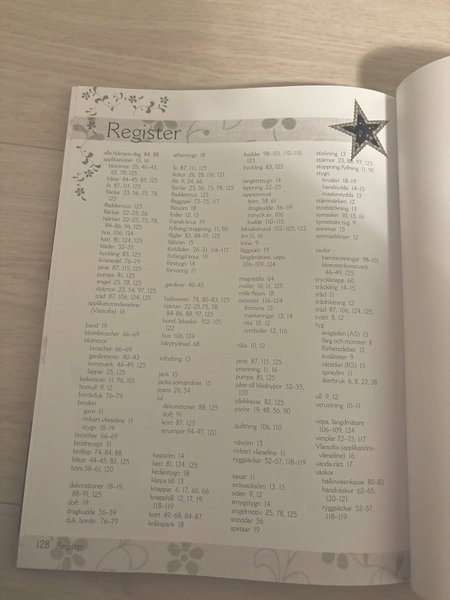 Register
alla hjärtans dag 84, 88
applikationer 13, 16
blommor 25, 40-43,
65, 78, 125
båtar 44-45, 85, 125
fe 87, 111, 125
fjärilar 23, 56, 75, 78,
125
fladdermus 125
fläckar 22-23, 26
hjärtan 22-23, 75, 78,
84-86, 96, 125
hus 106, 124
katt 81, 124, 125
kläder 32-35
kyckling 83, 125
livsmedel 76-79
pirat 87, 115, 125
pumpa 81, 125
ängel 25, 78, 125
stjärnor 23, 54, 97, 125
träd 87, 106, 124, 125
applikationsvlieseline
(Vliesofix) 16
band 19
blombroscher 66-69
blommor
broscher 66-69
gardinmotiv 40-43
konstverk 46-49, 125
lappar 25, 125
bokstäver 11, 96, 101
bomull 9, 12
bordsduk 76-79
broderi
garn 11
rivbart vlieseline 11
stygn 18-19
broscher 66-69
brödrecept 31
bröllop 74, 84, 88
båtar 44-45, 85, 125
börs 58-61, 120
dekorationer 18-19,
88-91, 125
doft 19
dragkudde 36-39
duk, bords- 76-79
efterstygn 18
fe 87, 111, 125
fickor 26, 28, 116, 121
filt 9, 24, 66
fjärilar 23, 56, 75, 78, 125
fladdermus 125
flaggspel 72-75, 117
flätsöm 18
foder 12, 13
fransk knut 19
fyllning/stoppning 11, 90
fåglar 83, 88-91, 125
fållsöm 15
förkläden 26-31, 116-117
förlängd knut 19
förstygn 14
förvaring 11
gardiner 40-45
halloween 78, 80-83, 125
hjärtan 22-27, 75, 78,
84-86, 88, 97, 125
hund, leksaks- 102-105,
122
hus 106, 124
hårprydnad 68
infodring 13
jack 15
jacka sömsmåner 15
jeans 26, 54
jul
dekorationer 88, 125
doft 91
kort 87, 125
strumpor 94-97, 120
kastsöm 14
katt 81, 124, 125
kedjestygn 18
klippa till 13
knappar 6, 17, 60, 66
knapphål 12, 17, 19,
118-119
kort 49, 68, 84-87
kråkspark 18
kuddar 98-101, 110-115,
123
kyckling 83, 125
langettstygn 14
lappning 22-25
lappsömnad
börs 58, 61
dragkudde 36-39
kudde 110-115
leksakshund 102-105, 122
lim 11, 16
linne 9
läggsöm 19
långdmätare, vepa
106-109, 124
magnetlås 64
mallar 10, 11, 125
mille fleurs 18
mönster 116-124
förstora 12
markeringar 13, 14
rita 10, 12
symboler 12, 116
nåla 10, 12
pirat 87, 115, 125
pressning 11, 16
pumpa 81, 125
påse till klädnypor 32-35,
120
påskkasse 82, 125
pärlor 19, 68, 56, 90
quiltning 106, 110
raksöm 13
rivbart vlieseline 11
ryggsäckar 52-57, 118-119
saxar 11
sicksacksöm 13, 15
siden 9, 12
smygstygn 14
snigelmotiv 25, 78, 125
snoddar 56
spetsar 19
stickning 13
stjärnor 23, 88, 97, 125
stoppning/fyllning 11, 90
stygn
broderi 18-19
handsydda 14-15
maskinsydda 13
stämmärken 12
stödstickning 13
symaskin 10, 13, 16
syntetiskt tyg 9
sömmar 15
sömnadslinjer 12
tavlor
barnteckningar 98-101
blomsterkonstverk
46-49, 125
tryckknapp 60
tråckling 14-15
tråd 11
trådriktning 12
träd 87, 106, 124, 125
tvätt 8, 12
tyg
avigsidan (AS) 15
färg och mönster 8
förberedelser 12
kvaliteter 9
rätsidan (RS) 15
spraylim 11
återbruk 6, 8, 22, 38
ull 9, 12
utrustning 10-11
vepa, längdmätare
106-109, 124
vimplar 72-75, 117
Vliesofix (applikations-
vlieseline) 16
vända rätt 17
väskor
halloweenkasse 80-83
handväskor 62-65,
120-121
ryggsäckar 52-57,
118-119
128 Register